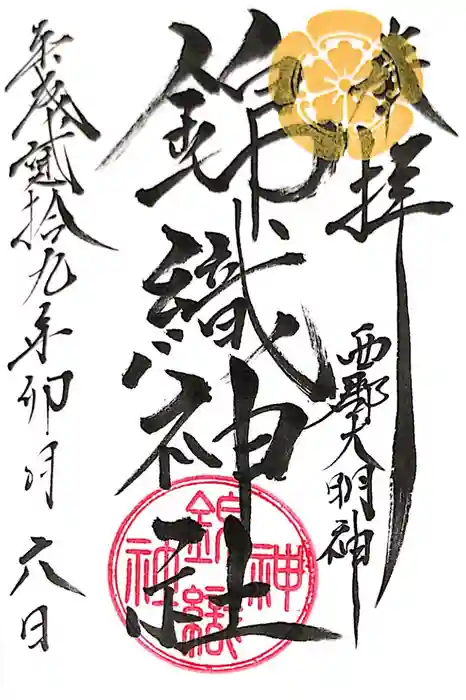 奉拝
西郷大明神
錦織神社
平成貳拾九年卯月六日
神
錦織
社